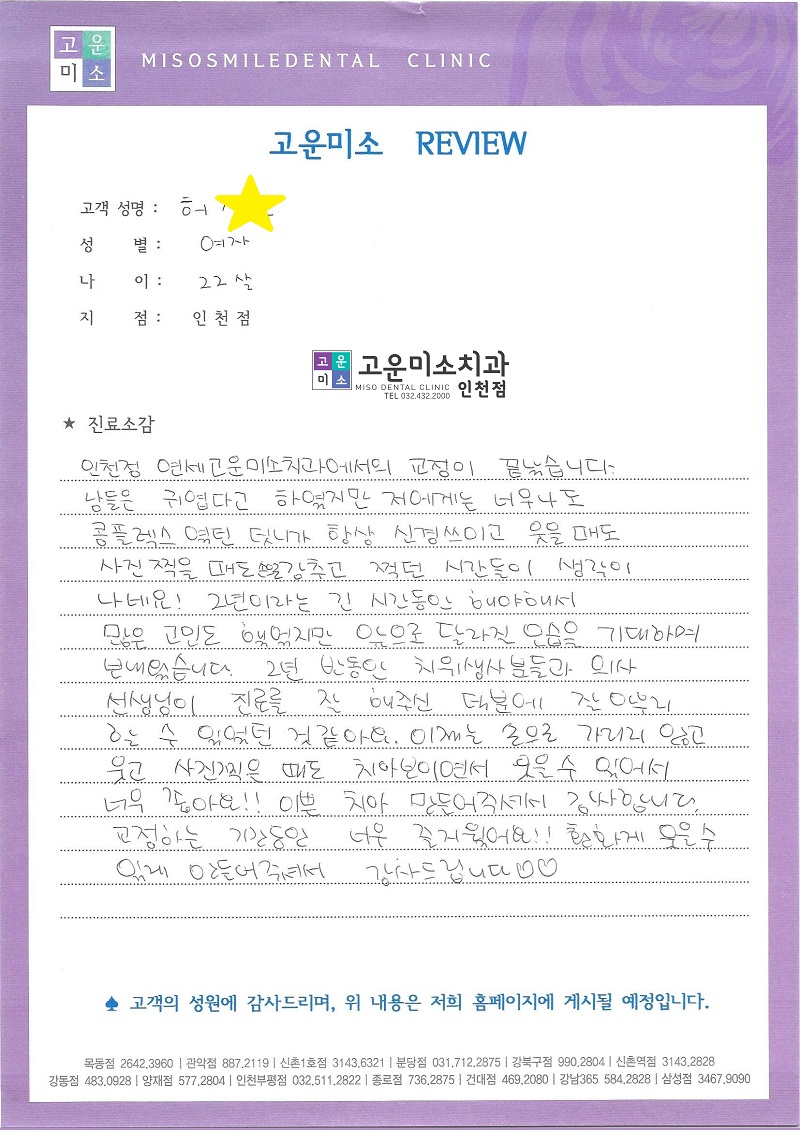 고운
미소
MISOSMILEDENTAL CLINIC
고운미소 REVIEW
고객 성명 : 허
성 별 : 여자
나 이 : 22살
지 점 : 인천점
고운
미소
고운미소치과
MISO DENTAL CLINIC 인천점
TEL 032.432.2000
★ 진료소감
인천점 연세고운미소치과에서의 교정이 끝났습니다.
남들은 귀엽다고 하였지만 저에게는 너무나도
콤플렉스 였던 덧니가 항상 신경쓰이고 웃을때도
사진 찍을 때도 감추고 찍던 시간들이 생각이
나네요! 2년이라는 긴 시간동안 해야해서
많은 고민도 했었지만 앞으로 달라진 모습을 기대하며
보내왔습니다. 2년 반동안 치위생사분들과 의사
선생님이 진료를 잘 해주신 덕분에 잘 마무리
하는 수 있었던 것 같아요. 이제는 손으로 가리리 않고
웃고 사진찍을 때도 치아보이면서 웃을수 있어서
너무 좋아요!! 이쁜 치아 만들어주셔서 감사합니다.
교정하는 기간동안 너무 즐거웠어요!! 환하게 웃을수
있게 만들어주셔서 감사드립니다♡♡
♠ 고객의 성원에 감사드리며, 위 내용은 저희 홈페이지에 게시될 예정입니다.
목동점 2642.3960 | 관악점 887.2119 | 신촌1호점 3143.6321 | 분당점 031.712.2875 | 강북구점 990.2804 | 신촌역점 3143.2828
강동점 483.0928 | 양재점 577.2804 | 인천부평점 032.511.2822 | 종로점 736.2875 | 건대점 469.2080 | 강남365 584.2828 | 삼성점 3467.9090